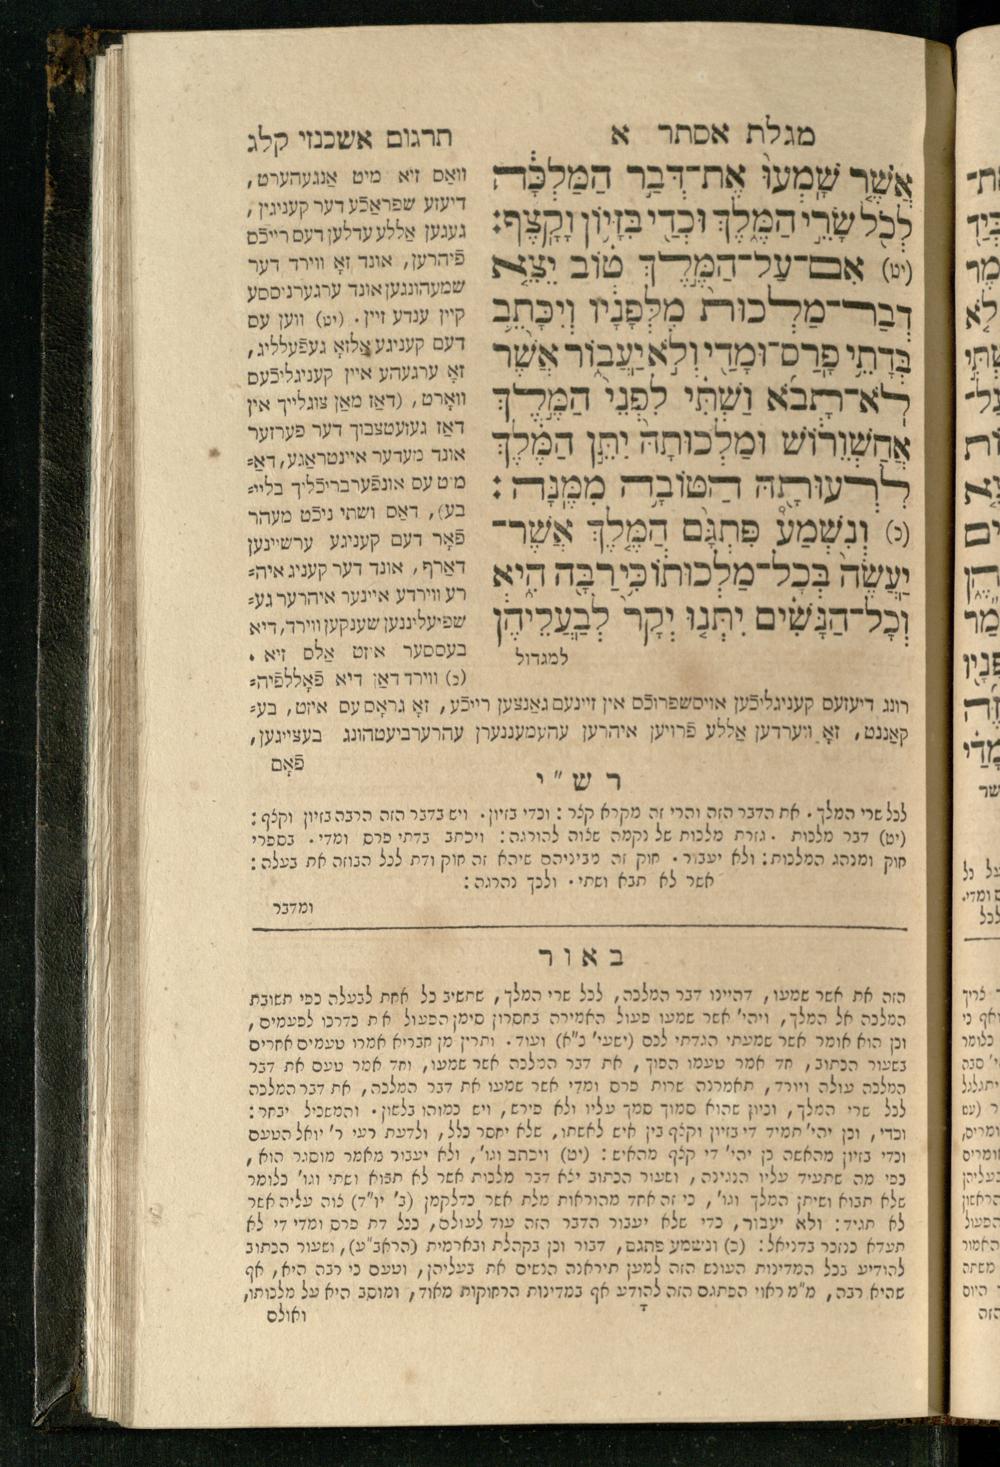 מגלת אסתר א
תרגום אשכנזי קלג
אֲשֶׁר שָׁמְעוּ אֶת־דְּבַר הַמַּלְכָּה
לְכֹל שָׂרֵי הַמֶּלֶךְ וּכְדַי בִּזָּיוֹן וָקָצֶף:
(יט) אִם־עַל־הַמֶּלֶךְ טוֹב יֵצֵא
דְבַר־מַלְכוּת מִלְּפָנָיו וְיִכָּתֵב
בְּדָתֵי פָרַס־וּמָדַי וְלֹא יַעֲבוֹר אֲשֶׁר
לֹא־תָבֹא וַשְׁתִּי לִפְנֵי הַמֶּלֶךְ
אֲחַשְׁוֵרוֹשׁ וּמַלְכוּתָהּ יִתֵּן הַמֶּלֶךְ
לִרְעוּתָהּ הַטּוֹבָה מִמֶּנָּה:
(כ) וְנִשְׁמַע פִּתְגָם הַמֶּלֶךְ אֲשֶׁר־
יַעֲשֶׂה בְּכָל־מַלְכוּתוֹ כִּי רַבָּה הִיא
וְכָל־הַנָּשִׁים יִתְּנוּ יְקָר לְבַעֲלֵיהֶן
למגדול
וואַס זיא מיט אַנגעהערט,
דיעזע שפראַכֿע דער קעניגין,
געגען אַללע עדלען דעם רייכֿס
פֿיהרען, אונד זאָ ווירד דער
שמעהונגען אונד ערגערניססע
קיין ענדע זיין. (יט) ווען עס
דעם קעניגע אַלזאָ געפֿעלליג,
זאָ ערגעהע איין קעניגליכֿעס
וואָרט, (דאַז מאַן צוגלייך אין
דאַז געזעטצבוך דער פערזער
אונד מעדער איינטראַגע, דאַ=
מיט עס אונפֿערברייכליך בליי=
בע), דאַס ושתי ניכֿט מעהר
פֿאָר דעם קעניגע ערשיינען
דאַרף, אונד דער קעניג איה=
רע ווירדע איינער איהרער גע=
שפיעליננען שענקען ווירד, דיא
בעססער איזט אַלס זיא.
(כ) ווירד דאַן דיא פֿאָללפֿיה=
רונג דיעזעס קעניגליכֿען אויסשפרוכֿס אין זיינעם גאַנצען רייכֿע, זאָ גראָס עס איזט, בע=
קאַננט, זאָ ווערדען אַללע פֿרויען איהרען עהעמעננערן עהרערביעטהונג בעצייגען,
פֿאָם
רש"י
לכל שרי המלך. את הדבר הזה והרי זה מקרא קצר: וכדי בזיון. ויש בדבר הזה הרבה בזיון וקצף:
(יט) דבר מלכות. גזרת מלכות של נקמה שצוה להורגה: ויכתב בדתי פרס ומדי. בספרי
חוק ומנהג המלכות: ולא יעבור. חוק זה מביניהם שיהא זה חוק ודת לכל הבוזה את בעלה:
אשר לא תבא ושתי. ולכך נהרגה:
ומדבר
באור
הזה את אשר שמעו, דהיינו דבר המלכה, לכל שרי המלך, שתשיב כל אחת לבעלה כפי תשובת
המלכה אל המלך, ויהי' אשר שמעו פעול האמירה בחסרון סימן הפעול את כדרכו לפעמים,
וכן הוא אומר אשר שמעתי הגדתי לכם (ישעי' כ"א) ועוד. ותרין מן חבריא אמרו טעמים אחרים
בשעור הכתוב, חד אמר טעמו הפוך, את דבר המלכה אשר שמעו, וחד אמר טעם את דבר
המלכה עולה ויורד, תאמרנה שרות פרס ומדי אשר שמעו את דבר המלכה, את דבר המלכה
לכל שרי המלך, וכיון שהוא סמוך סמך עליו ולא פירש, ויש כמוהו בלשון. והמשכיל יבחר:
וכדי, וכן יהי' תמיד די בזיון וקצף בין איש לאשתו, שלא יחסר כלל, ולדעת רעי ר' יואל הטעם
וכדי בזיון מהאשה כן יהי' די קצף מהאיש: (יט) ויכתב וגו', ולא יעבור מאמר מוסגר הוא,
כפי מה שתעיד עליו הנגינה, ושעור הכתוב יצא דבר מלכות אשר לא תבוא ושתי וגו' כלומר
שלא תבוא ושיתן המלך וגו', כי זה אחד מהוראות מלת אשר כדלקמן (ב' יו"ד) צוה עליה אשר
לא תגיד: ולא יעבור, כדי שלא יעבור הדבר הזה עוד לעולם, ככל דת פרס ומדי די לא
תעדא כנזכר בדניאל: (כ) ונשמע פתגם, דבור וכן בקהלת ובארמית (הראב"ע), ושעור הכתוב
להודיע בכל המדינות העונש הזה למען תיראנה הנשים את בעליהן, וטעם כי רבה היא, אף
שהיא רבה, מ"מ ראוי הפתגם הזה להודע אף במדינות הרחוקות מאוד, ומוסב היא על מלכותו,
ואולם